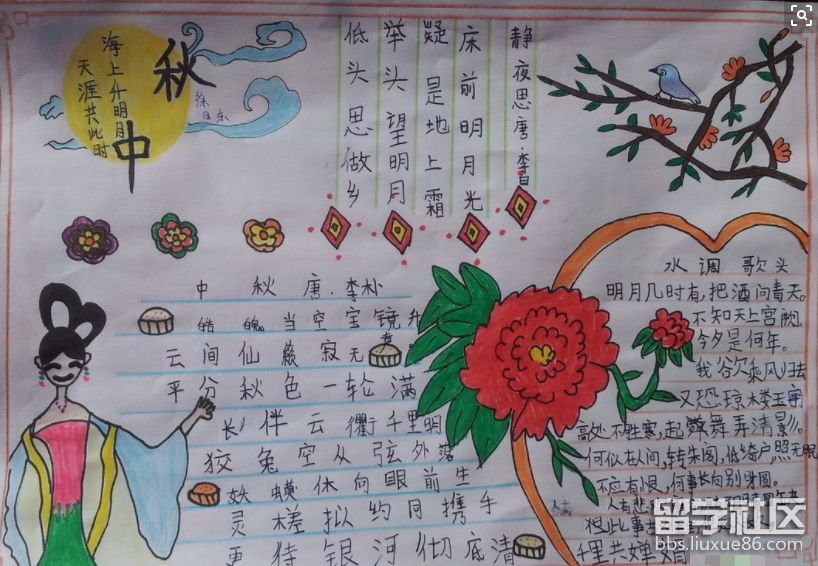 秋
中
海上升明月
天涯共此时
静夜思唐·李白
床前明月光
疑是地上霜
举头望明月
低头思做乡
中秋唐·李朴
皓魄当空宝镜升
云间仙籁寂无声
平分秋色一轮满
长伴云衢千里明
狡兔空从弦外落
妖蟆休向眼前生
灵槎拟约同携手
更待银河彻底清
水调歌头
明月几时有,把酒问青天。
不知天上宫阙
今夕是何年。
我欲乘风归去
又恐琼楼玉宇
高处不胜寒,起舞弄清影。
何似在人间,转朱阁,低绮户照无眠
不应有恨,何事长向别时圆。
人有悲
但此事
千里共婵娟
留学社区
bbs.liuxue86.com